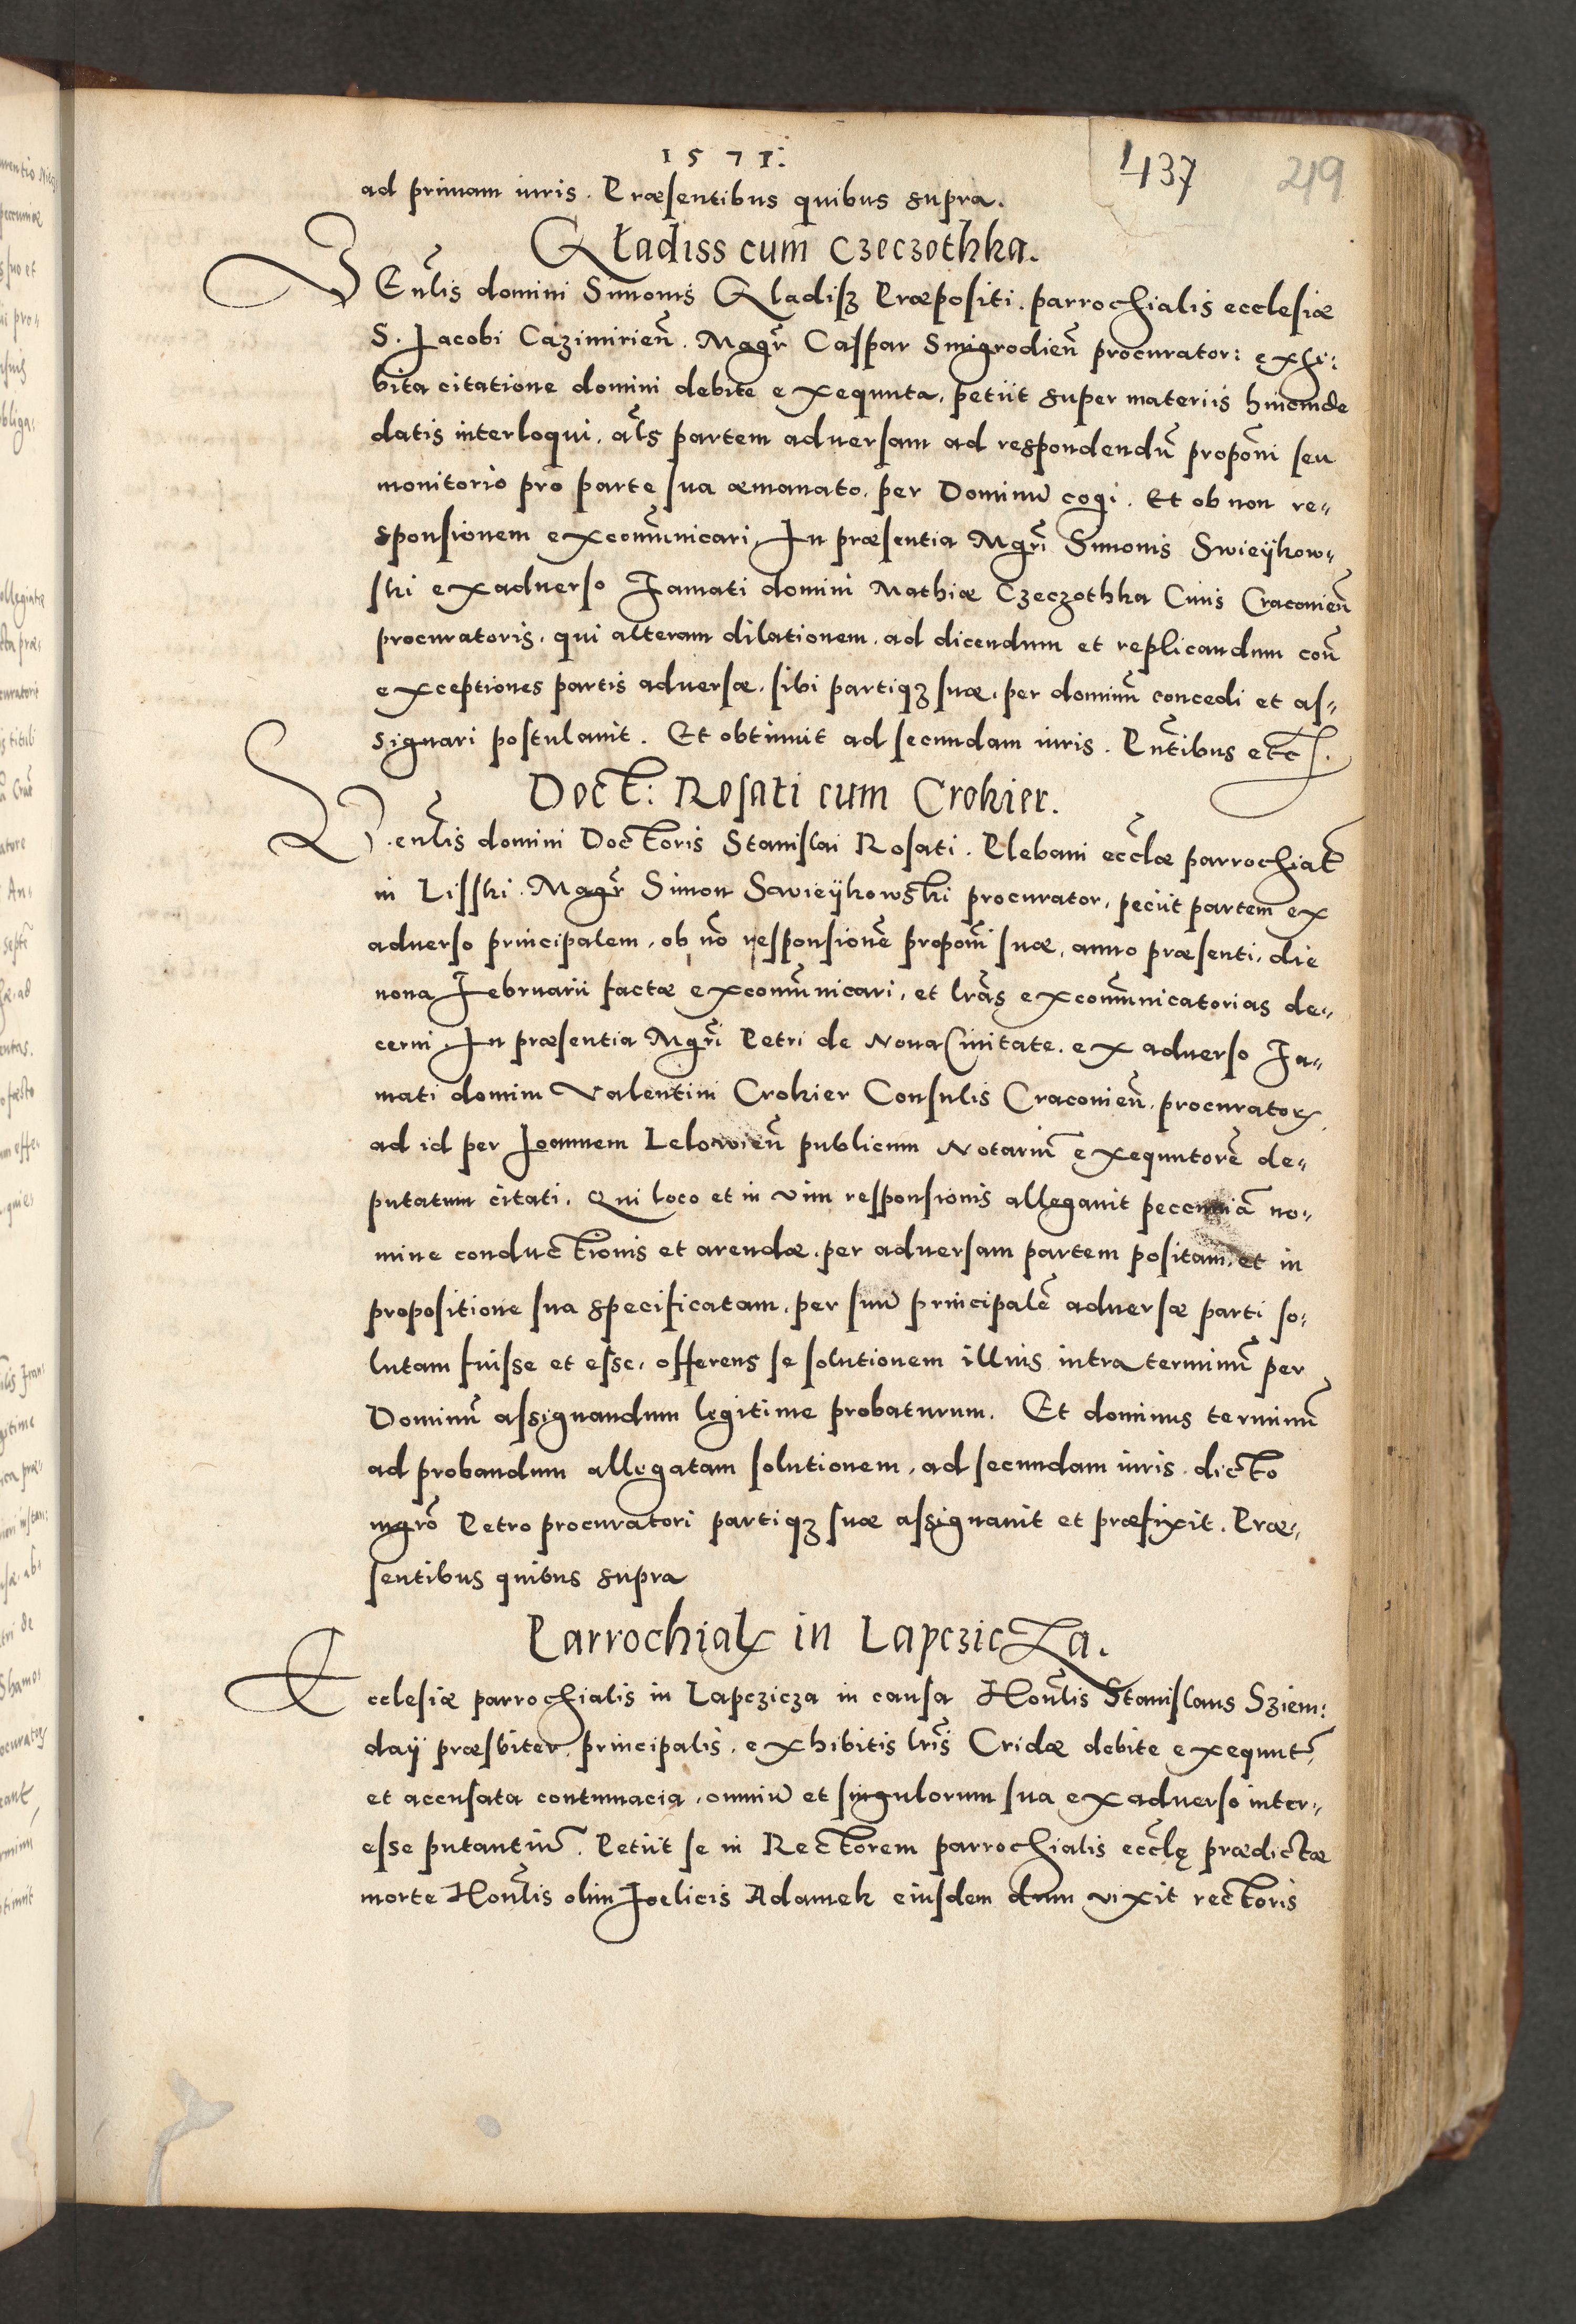 1571.
437 219
ad primam iuris. Præsentibus quibus supra.
Gładiss cum Czeczothka.
VEnlis domini Simonis Gladisz Præpositi parrochialis ecclesiæ
S. Jacobi Cazimirien. Magr Caspar Smigrodien procurator: exhi:
bita citatione domini debite exequuta, petiit super materiis hincinde
datis interloqui, als partem aduersam ad respondendu proponi seu
monitorio pro parte sua æmanato, per Dominu cogi. Et ob non re„
sponsionem excomunicari, In præsentia Mgri Simonis Swieÿkow„
ski ex aduerso Famati domini Mathiæ Czeczothka Ciuis Craconien
procuratoris, qui alteram dilationem ad dicendum et replicandum con
exceptiones partis aduersæ, sibi partiqz suæ, per dominu concedi et as„
signari postulauit. Et obtinuit ad secundam iuris. Pntibus etc.
Doct: Rosati cum Crokier.
Venlis domini Doctoris Stanislai Rosati. Plebani ecclæ parrochial
in Lisski. Magr Simon Swieÿkowski procurator, petiit partem ex
aduerso principalem, ob no responsione proponi suæ, anno præsenti, die
nona Februarii factæ excomunicari, et lras excomunicatorias de„
cerni. In præsentia Mgri Petri de Noua Ciuitate, ex aduerso Fa„
mati domini Valentini Crokier Consulis Craconien, procurator
ad id per Joannem Lelowien publicum Notariu exequutore de„
putatum citati. Qui loco et in vim responsionis allegauit pecunia no„
mine conductionis et arendæ, per aduersam partem positam, et in
propositione sua specificatam, per suu principale aduersæ parti so„
lutam fuisse et esse, offerens se solutionem illius intra terminu per
Dominu assignandum legitime probaturum. Et dominus terminu
ad probandum allegatam solutionem, ad secundam iuris dicto
mgro Petro procuratori partiqz suæ assignauit et præfixit. Præ„
sentibus quibus supra
Parrochial in Lapczicza.
Ecclesiæ parrochialis in Lapczicza in causa Honlis Stanislaus Sziem:
daÿ præsbiter, principalis, exhibitis lris Cridæ debite exequut
et accusata contumacia, omniu et singulorum sua ex aduerso inter„
esse putantiu. Petiit se in Rectorem parrochialis ecclę prædictæ
morte Honlis olim Foelicis Adamek eiusdem dum vixit rectoris